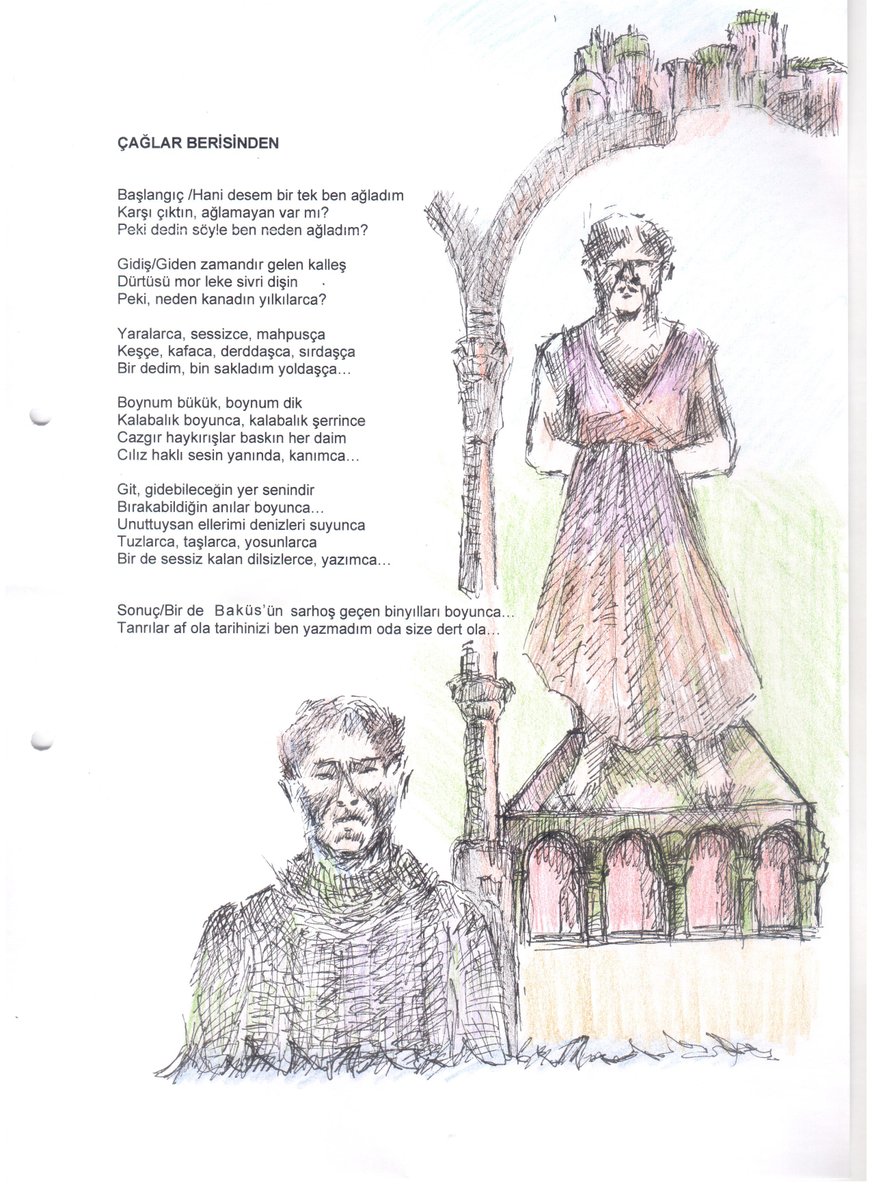 ÇAĞLAR BERİSİNDEN
Başlangıç /Hani desem bir tek ben ağladım
Karşı çıktın, ağlamayan var mı?
Peki dedin söyle ben neden ağladım?
Gidiş/Giden zamandır gelen kalleş
Dürtüsü mor leke sivri dişin
Peki, neden kanadın yılkılarca?
Yaralarca, sessizce, mahpusça
Keşçe, kafaca, derddaşca, sırdaşça
Bir dedim, bin sakladım yoldaşça…
Boynum bükük, boynum dik
Kalabalık boyunca, kalabalık şerrince
Cazgır haykırışlar baskın her daim
Cılız haklı sesin yanında, kanımca…
Git, gidebileceğin yer senindir
Bırakabildiğin anılar boyunca…
Unuttuysan ellerimi denizleri suyunca
Tuzlarca, taşlarca, yosunlarca
Bir de sessiz kalan dilsizlerce, yazımca…
Sonuç/Bir de Baküs'ün sarhoş geçen binyılları boyunca…
Tanrılar af ola tarihinizi ben yazmadım oda size dert ola…